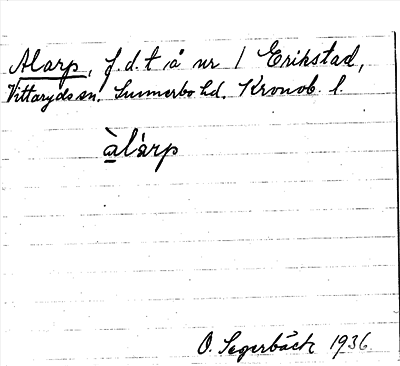 Alarp, f.d.t å nr 1 Erikstad,
Vittaryds sn. Sunnerbo hd. Kronob. l.
àlárp
O. Segerbäck 1936